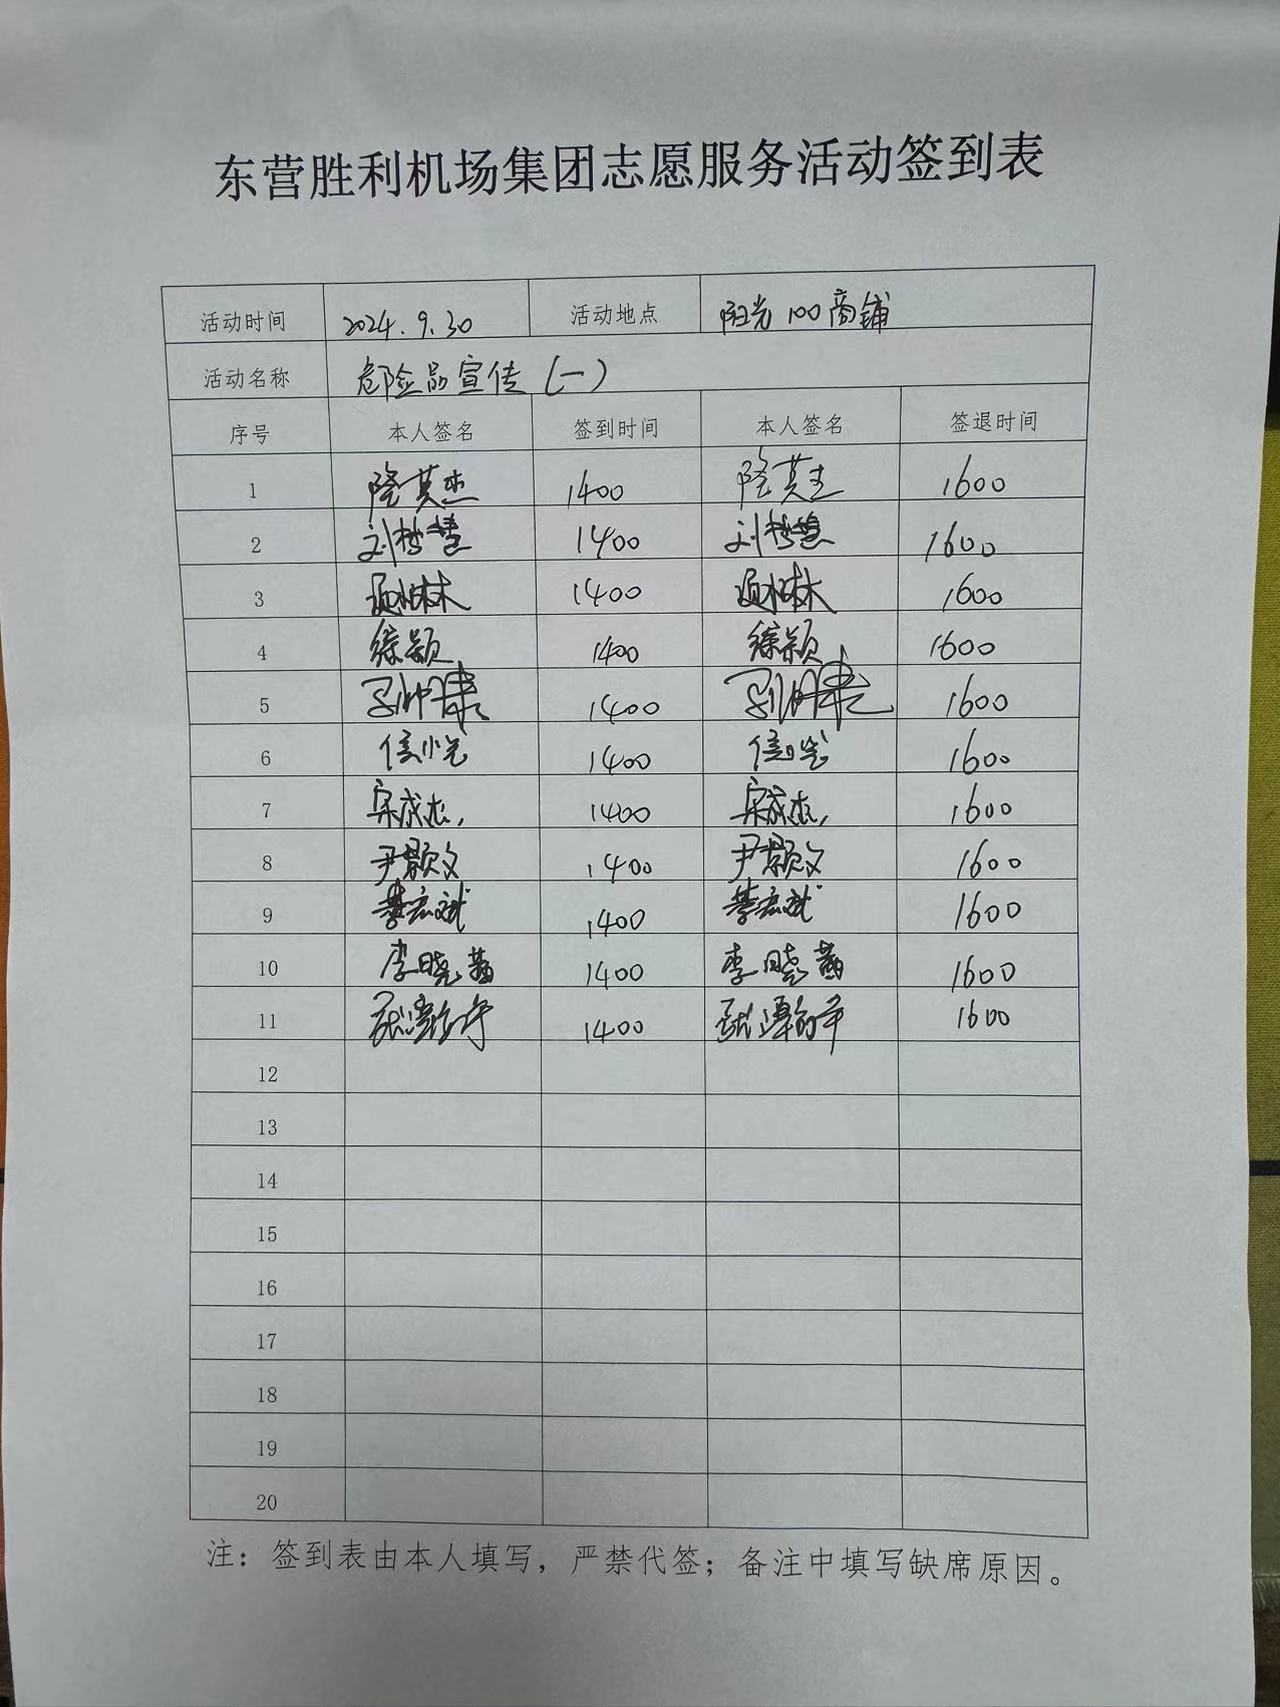 东营胜利机场集团志愿服务活动签到表
活动时间 2024.9.30 活动地点 阳光100商铺
活动名称 危险品宣传（一）
序号 本人签名 签到时间 本人签名 签退时间
1 隆英杰 1400 隆英杰 1600
2 刘梦慧 1400 刘梦慧 1600
3 1400 1600
4 徐颖 1400 徐颖 1600
5 1400 1600
6 1400 1600
7 宋成杰 1400 宋成杰 1600
8 尹颢文 1400 尹颢文 1600
9 1400 1600
10 李晓茜 1400 李晓茜 1600
11 1400 1600
12
13
14
15
16
17
18
19
20
注：签到表由本人填写，严禁代签；备注中填写缺席原因。